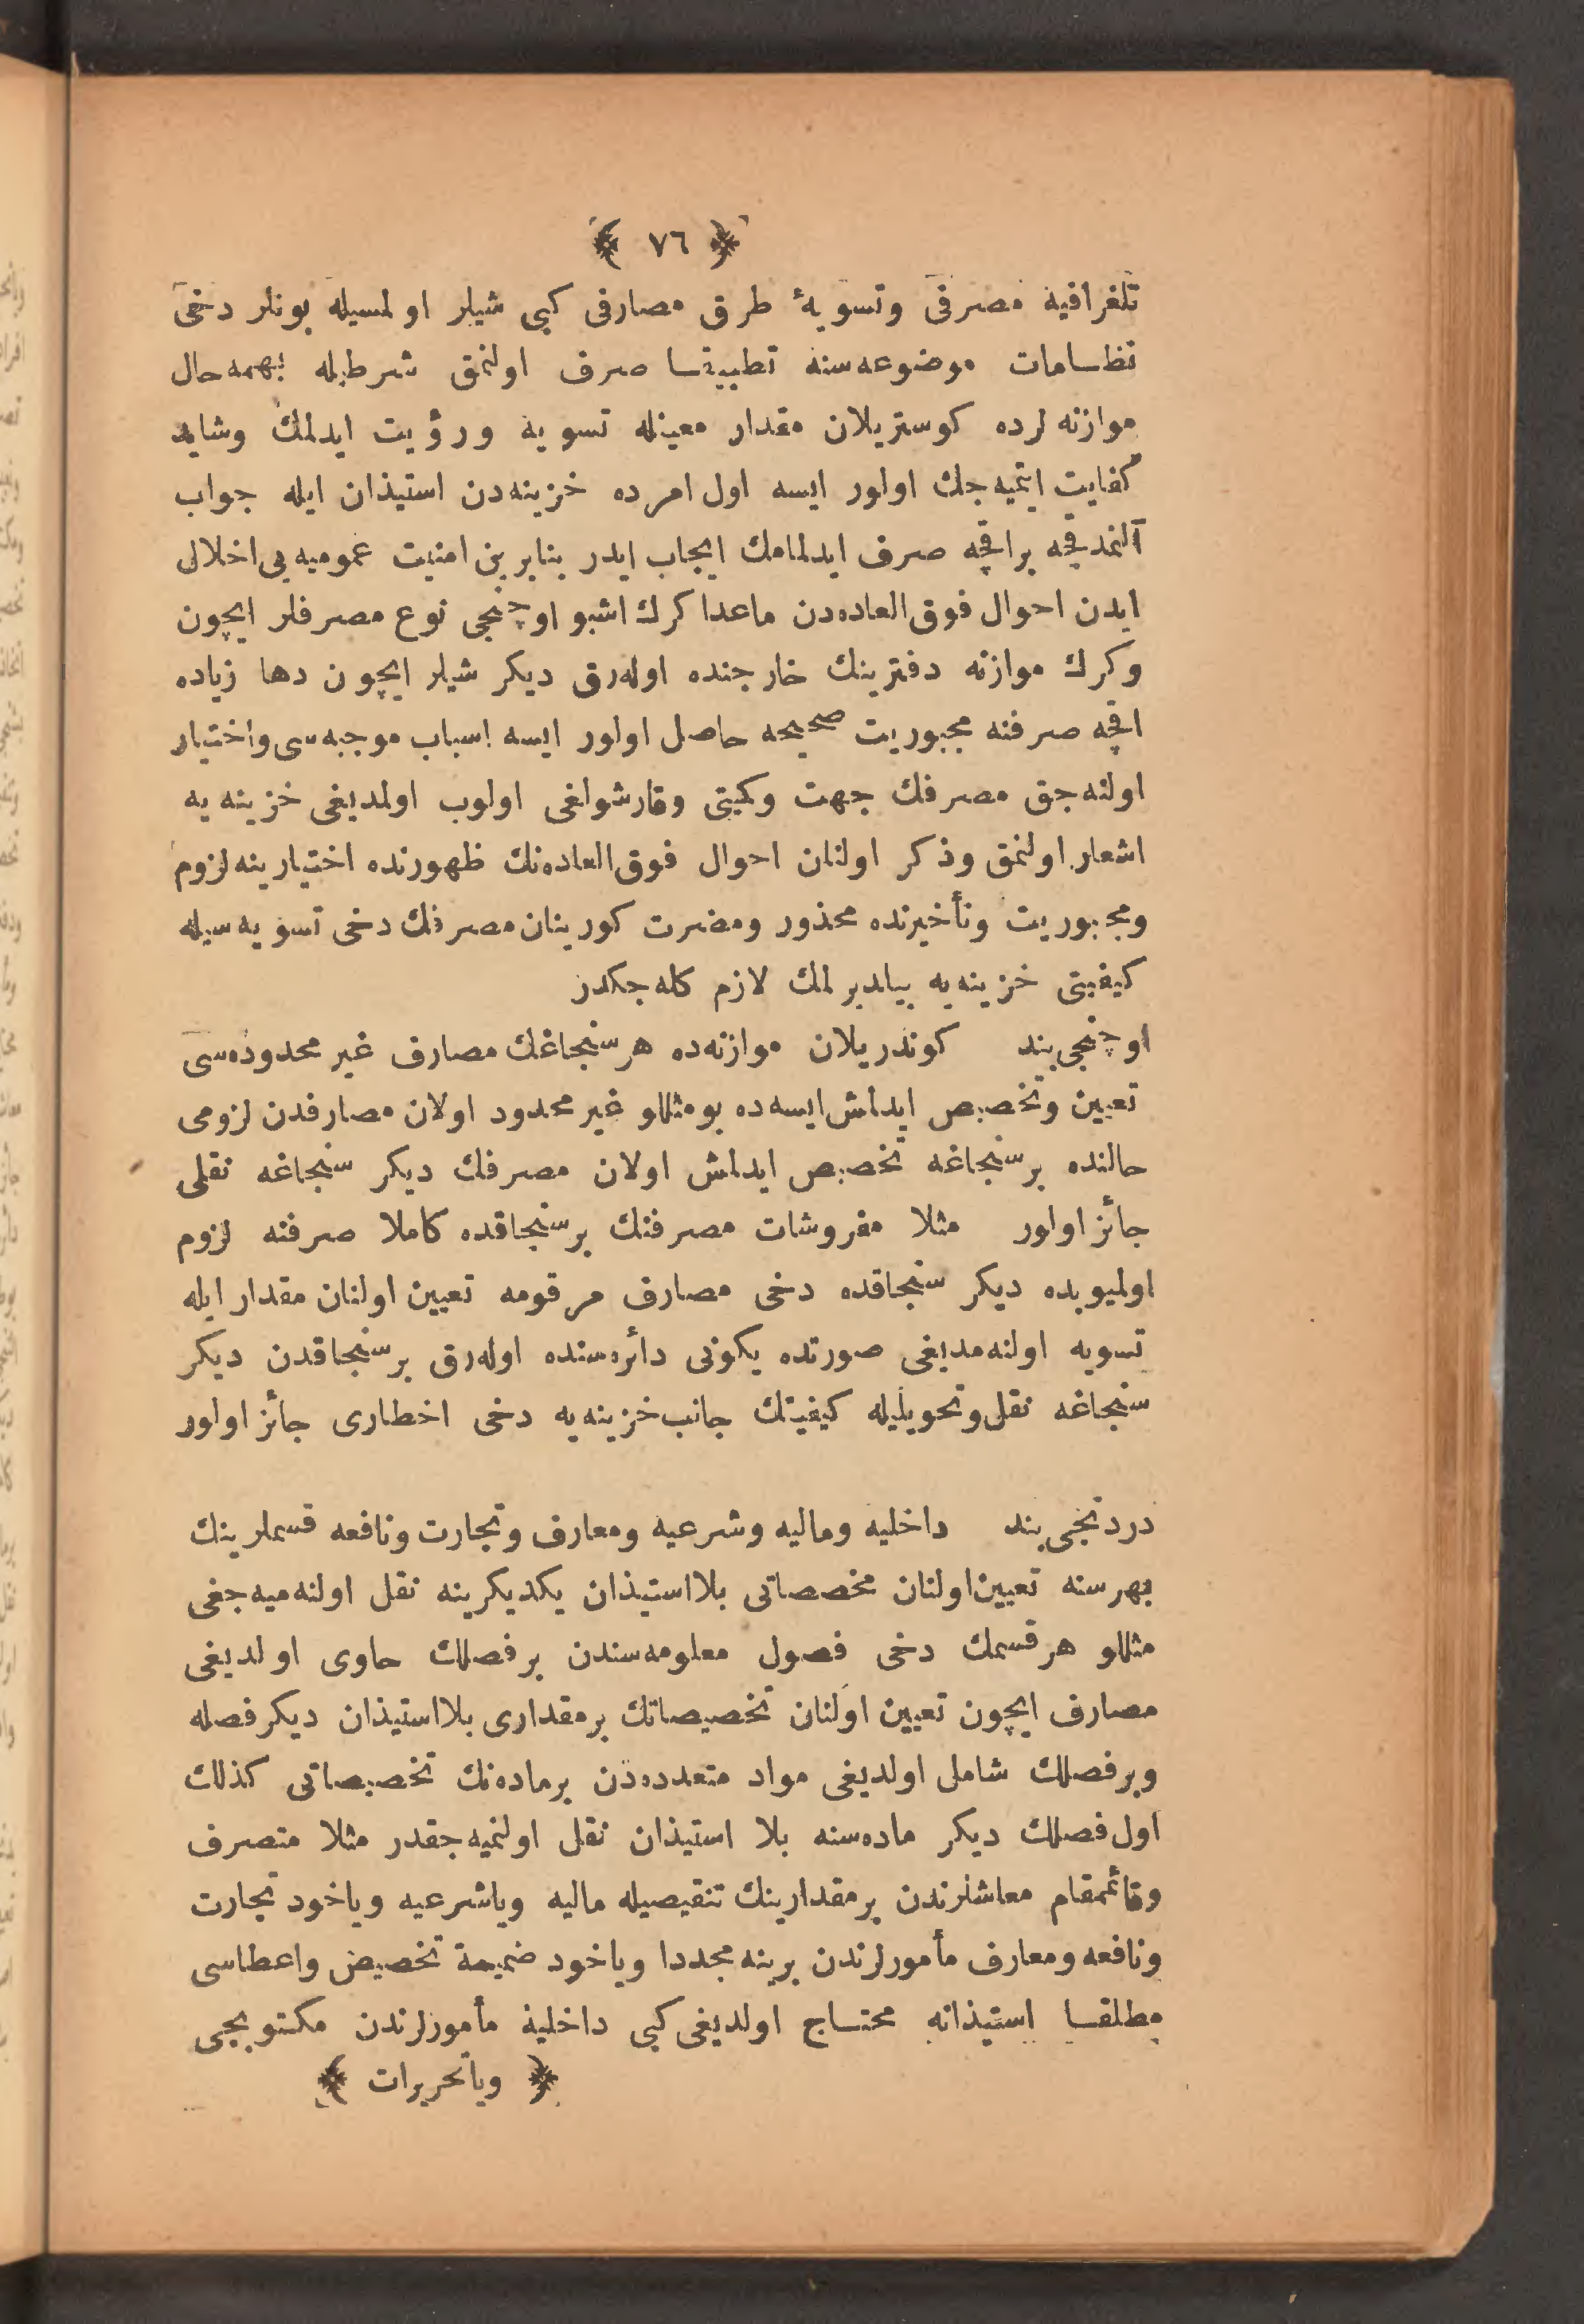 ﴿ ٧٦ ﴾
تلغرافیه مصرفی وتسویۀ طرق مصارفی کبی شیلر اولمسیله بونلر دخی
نظامات موضوعه‌سنه تطبیقا صرف اولنمق شرطیله بهمه‌حال
موازنه لرده کوستریلان مقدار معینله تسویه ورؤیت ایدلمك وشاید
کفایت ایتمیه‌جك اولور ایسه اول امرده خزینه‌دن استیذان ایله جواب
آلنمدقچه براقچه صرف ایدلمامك ایجاب ایدر بنابرین امنیت عمومیه‌یی اخلال
ایدن احوال فوق‌العاده‌دن ماعدا کرك اشبو اوچنجی نوع مصرفلر ایچون
وکرك موازنه دفترینك خارجنده اوله‌رق دیکر شیلر ایچون دها زیاده
اقچه صرفنه مجبوریت صحیحه حاصل اولور ایسه اسباب موجبه‌سی واختیار
اولنه‌جق مصرفك جهت وکمیتی وقارشولغی اولوب اولمدیغی خزینه‌یه
اشعار اولنمق وذکر اولنان احوال فوق‌العاده‌نك ظهورنده اختیارینه لزوم
ومجبوریت وتأخیرنده محذور ومضرت کورینان مصرفك دخی تسویه‌سیله
کیفیتی خزینه‌یه بیلدیرلمك لازم کله‌جکدر
اوچنجی بند کوندریلان موازنه‌ده هر سنجاغك مصارف غیر محدوده‌سی
تعیین وتخصیص ایدلمش ایسه‌ده بومثللو غیر محدود اولان مصارفدن لزومی
حالنده برسنجاغه تخصیص ایدلمش اولان مصرفك دیکر سنجاغه نقلی
جائز اولور مثلا مفروشات مصرفنك برسنجاقده کاملا صرفنه لزوم
اولمیوبده دیکر سنجاقده دخی مصارف مرقومه تعیین اولنان مقدار ایله
تسویه اولنه‌مدیغی صورتده یکونی دائره‌سنده اوله‌رق برسنجاقدن دیکر
سنجاغه نقل وتحویلیله کیفیتك جانب خزینه‌یه دخی اخطاری جائز اولور
دردنجی بند داخلیه ومالیه وشرعیه ومعارف وتجارت ونافعه قسملرینك
بهرسنه تعیین اولنان مخصصاتی بلااستیذان یکدیکرینه نقل اولنه‌میه‌جغی
مثللو هرقسمك دخی فصول معلومه‌سندن برفصلك حاوی اولدیغی
مصارف ایچون تعیین اولنان تخصیصاتك برمقداری بلااستیذان دیکرفصله
وبرفصلك شامل اولدیغی مواد متعدده‌دن برماده‌نك تخصیصاتی کذلك
اول فصلك دیکر ماده‌سنه بلا استیذان نقل اولنمیه‌جقدر مثلا متصرف
وقائممقام معاشلرندن برمقدارینك تنقیصیله مالیه ویاشرعیه ویاخود تجارت
ونافعه ومعارف مأمورلرندن برینه مجددا ویاخود ضمیمة تخصیص واعطاسی
مطلقا استیذانه محتاج اولدیغی کبی داخلیه مأمورلرندن مکتوبجی
﴿ ویاتحریرات ﴾